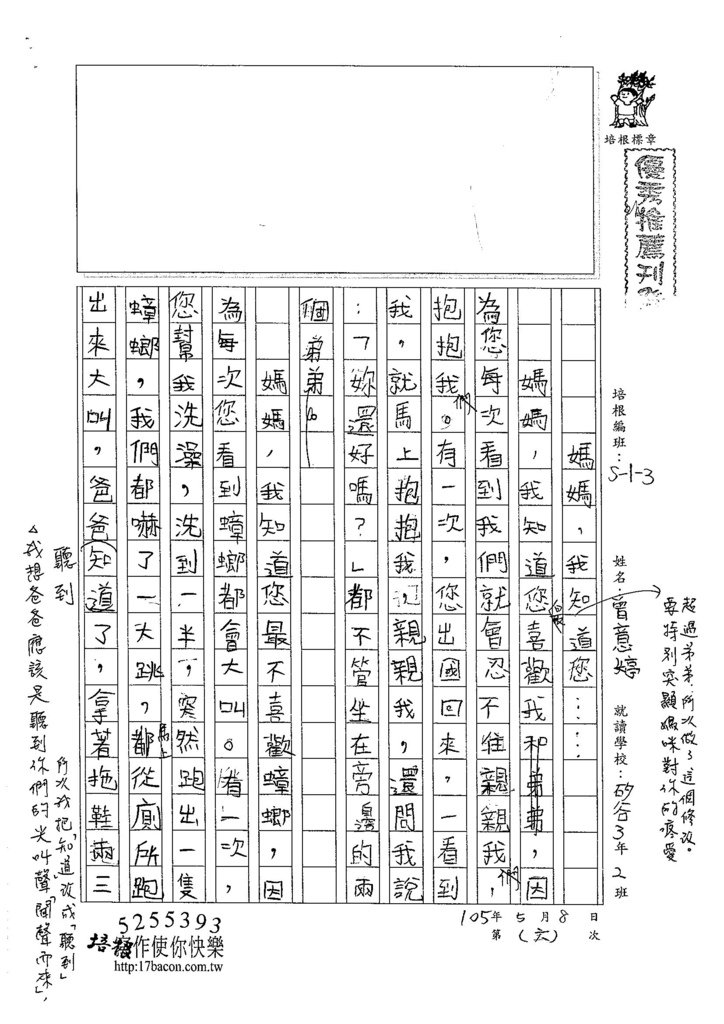 培根標章
優秀推薦刊
培根編班：S-1-3
姓名：曾意婷
就讀學校：矽谷3年2班
105年5月8日
第(六)次
媽媽，我知道您……
媽媽，我知道您最喜歡我和弟弟，因
為您每次看到我們就會忍不住親親我們，
抱抱我們。有一次，您出國回來，一看到
我，就馬上抱抱我，親親我，還問我說
：「妳還好嗎？」都不管坐在旁邊的兩
個弟弟。
媽媽，我知道您最不喜歡蟑螂，因
為每次您看到蟑螂都會大叫。有一次，
您幫我洗澡，洗到一半，突然跑出一隻
蟑螂，我們都嚇了一大跳，都馬上從廁所跑
出來大叫，爸爸知道了，拿著拖鞋兩三
聽到
△我想爸爸應該是聽到你們的尖叫聲「聞聲而來」，
所以我把「知道」改成「聽到」
要特別突顯媽咪對你的疼愛
超過弟弟，所以做了這個修改。
5255393
培根作使你快樂
http:17bacon.com.tw